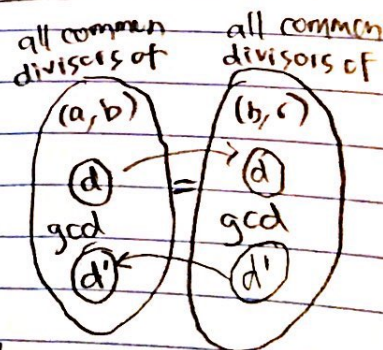 all common
divisors of
(a, b)
d
gcd
d'
=
all common
divisors of
(b, c)
d
gcd
d'